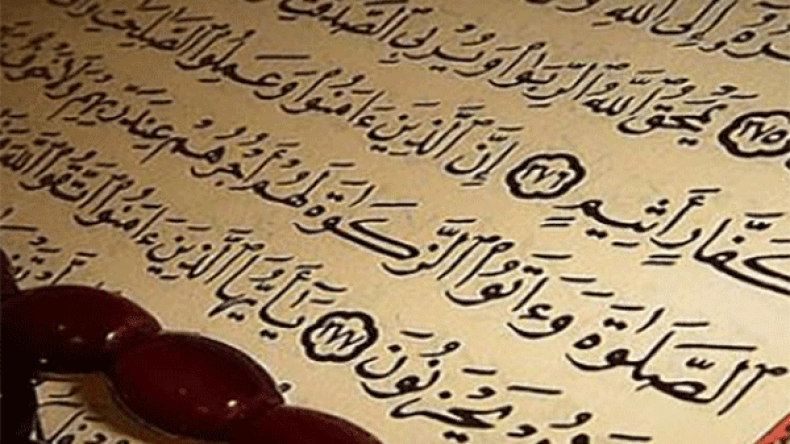 إِلَى ٱللَّهِ
٢٧٥ يَمْحَقُ ٱللَّهُ ٱلرِّبَوٰا۟ وَيُرْبِى ٱلصَّدَقَٰتِ
كَفَّارٍ أَثِيمٍ ٢٧٦ إِنَّ ٱلَّذِينَ ءَامَنُوا۟ وَعَمِلُوا۟ ٱلصَّٰلِحَٰتِ
ٱلصَّلَوٰةَ وَءَاتَوُا۟ ٱلزَّكَوٰةَ لَهُمْ أَجْرُهُمْ عِندَ رَبِّهِمْ وَلَا خَوْفٌ
يَحْزَنُونَ ٢٧٧ يَٰٓأَيُّهَا ٱلَّذِينَ ءَامَنُوا۟ ٱتَّقُوا۟ ٱللَّهَ